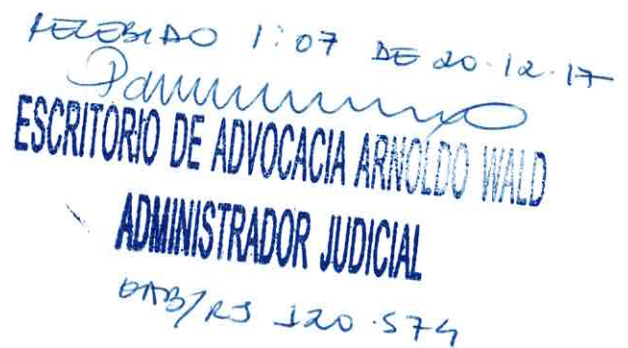 RECEBIDO 1:07 DE 20.12.17
ESCRITORIO DE ADVOCACIA ARNOLDO WALD
ADMINISTRADOR JUDICIAL
OAB/RJ 120.574